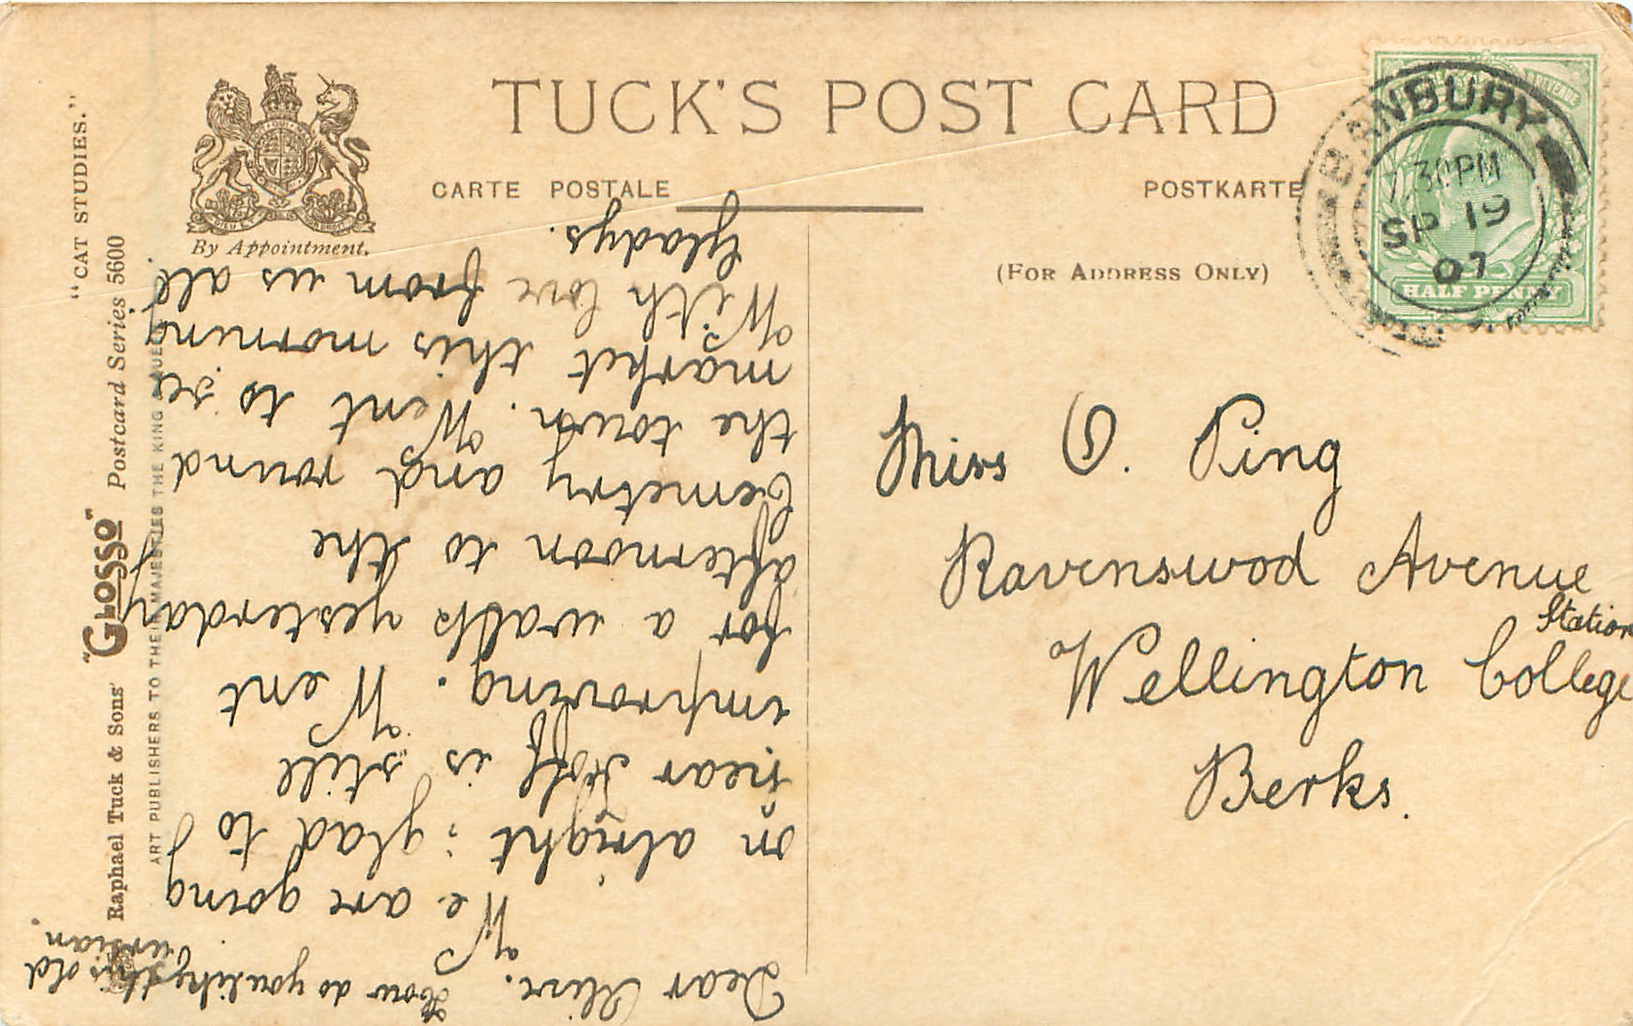 TUCK'S POST CARD
CARTE POSTALE
POSTKARTE
(FOR ADDRESS ONLY)
By Appointment.
"CAT STUDIES."
Raphael Tuck & Sons' "GLOSSO" Postcard Series 5600
ART PUBLISHERS TO THEIR MAJESTIES THE KING & QUEEN
BANBURY
7.30PM
SP 19
07
HALF PENNY
Miss O. Ping
Ravenswood Avenue
Station
Wellington College
Berks.
Dear Olive. How do you like this old
Persian.
We are going
on alright : glad to
hear Hoff is still
improving. Went
for a walk yesterday
afternoon to the
Cemetry and round
the town. Went to se
market this morning
With love from us all
Gladys.